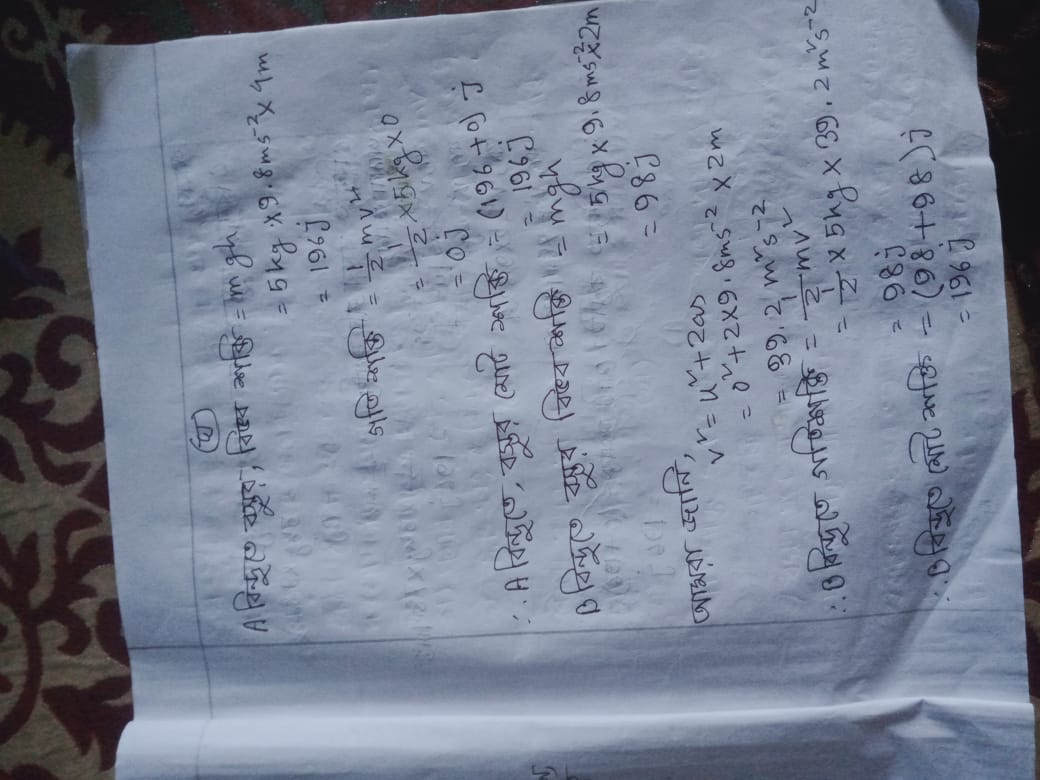 (ঘ)
A বিন্দুতে বস্তুর, বিভব শক্তি = mgh
= 5kg × 9.8ms⁻² × 4m
= 196j
গতি শক্তি = 1/2 mv²
= 1/2 × 5kg × 0
= 0j
∴ A বিন্দুতে, বস্তুর মোট শক্তি = (196 + 0) j
= 196j
B বিন্দুতে বস্তুর, বিভব শক্তি = mgh
= 5kg × 9.8ms⁻² × 2m
= 98j
আমরা জানি,
v² = u² + 2as
= 0² + 2×9.8ms⁻² × 2m
= 39.2 m²s⁻²
∴ B বিন্দুতে গতিশক্তি = 1/2 mv²
= 1/2 × 5kg × 39.2m²s⁻²
= 98j
∴ B বিন্দুতে মোট শক্তি = (98+98)j
= 196j